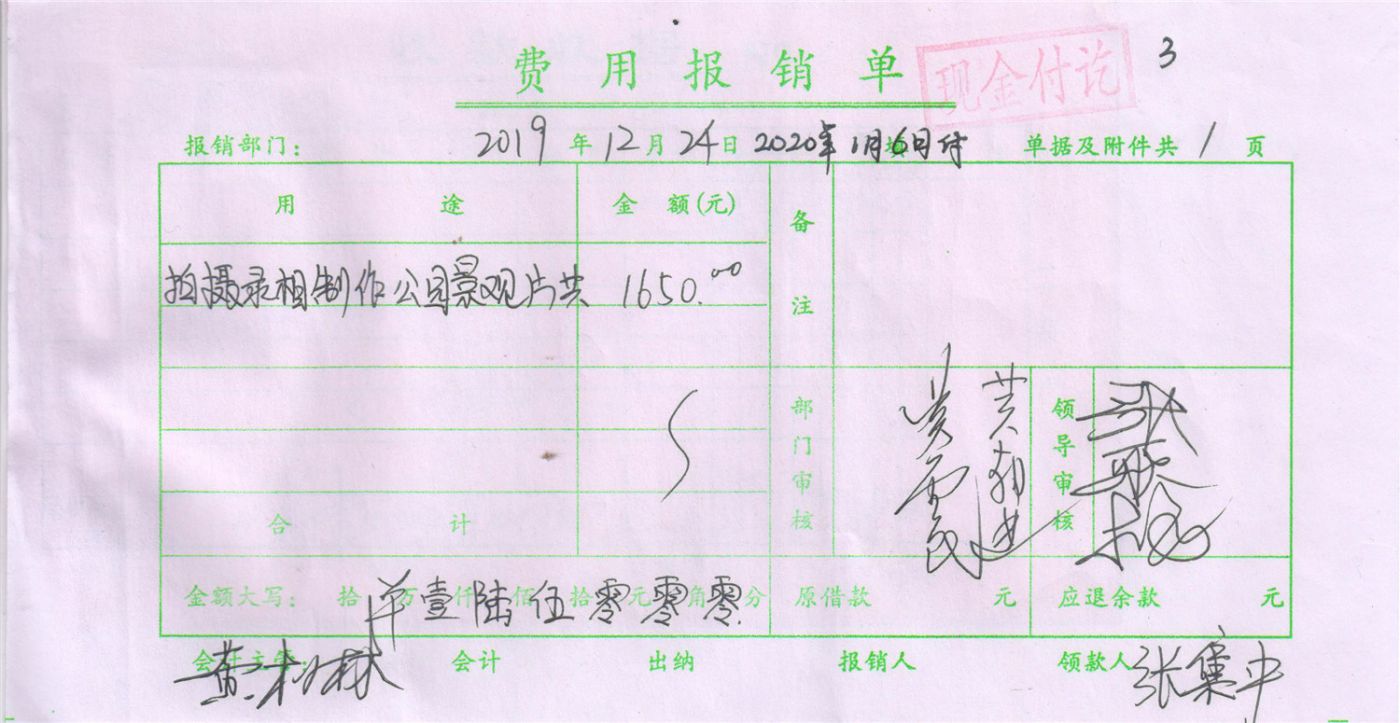 费用报销单
现金付讫
3
报销部门： 2019年12月24日 2020年1月6日付 单据及附件共1页
用途 金额(元) 备注
拍摄录相制作公园景观片共 1650.00
部门审核 领导审核
合计
金额大写： 拾 万 仟 佰 拾 元 角 分 壹陆伍零零零 原借款 元 应退余款 元
会计主管： 会计 出纳 报销人 领款人 张集中